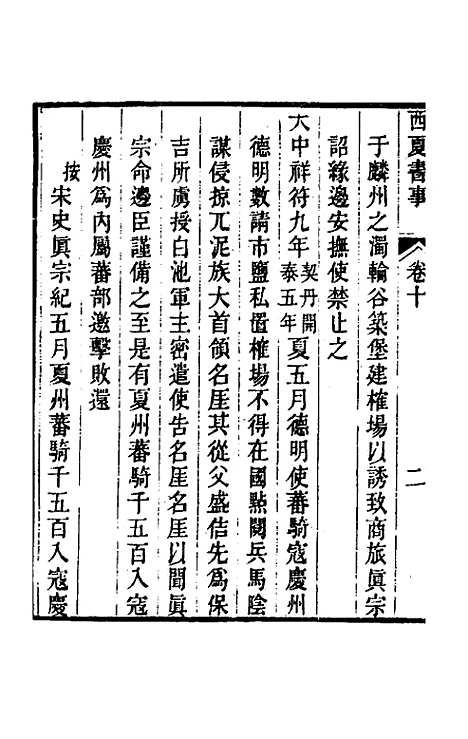 西夏書事 卷十 二
于麟州之濁輪谷築堡建榷場以誘致商旅眞宗
詔緣邊安撫使禁止之
大中祥符九年契丹開泰五年夏五月德明使蕃騎寇慶州
德明數請市鹽私置榷場不得在國點閱兵馬陰
謀侵掠兀泥族大首領名厓其從父盛佶先爲保
吉所虜授白池軍主密遣使吿名厓名厓以聞眞
宗命邊臣謹備之至是有夏州蕃騎千五百入寇
慶州爲內屬蕃部邀擊敗還
按宋史眞宗紀五月夏州蕃騎千五百入寇慶